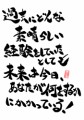 過去にどんな
素晴らしい
経験をしていた
としても
未来は今日、
あなたが何を始めるか
にかかっている!